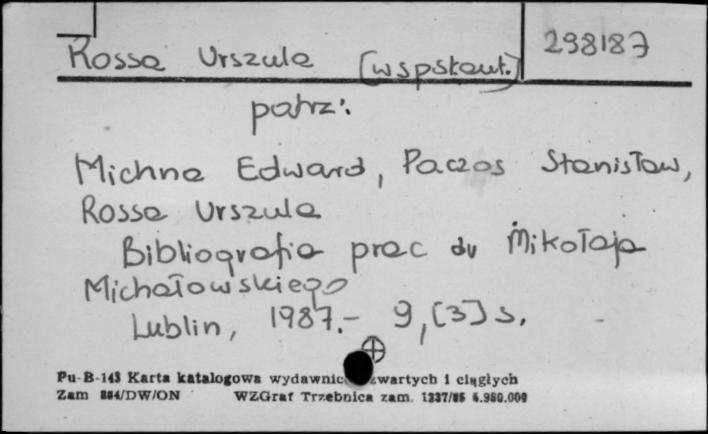 Rossa Urszula (wspsłaut.) 298187
patrz:
Michna Edward, Paczos Stanisław,
Rossa Urszula
Bibliografia prac dr Mikołaja
Michałowskiego
Lublin, 1987.- 9, [3] s.
Pu-B-143 Karta katalogowa wydawnic zwartych i ciągłych
Zam /DW/ON WZGraf Trzebnica zam.